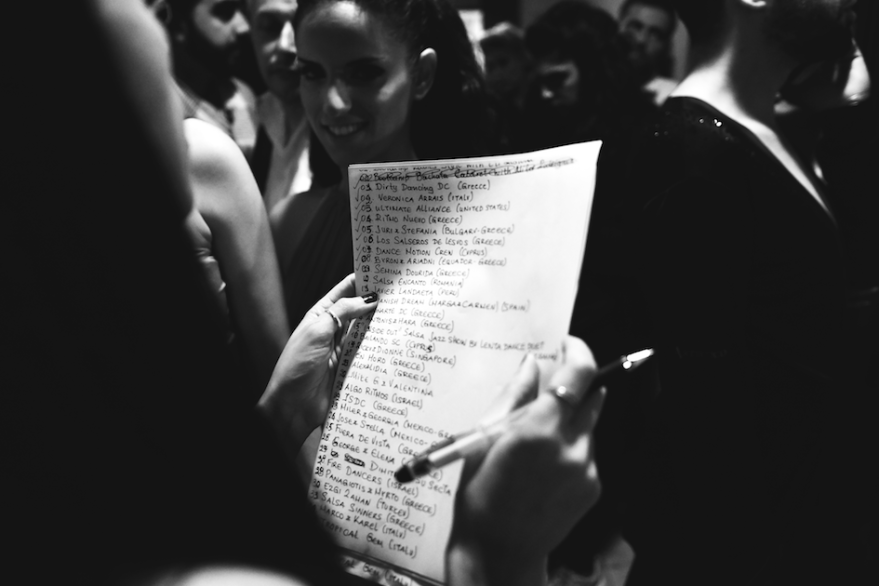 03 Dirty Dancing DC (GREECE)
04 VERONICA ARRAIS (ITALY)
05 ULTIMATE ALLIANCE (UNITED STATES)
04 RITMO NUEVO (GREECE)
05 JURI & STEFANIA (BULGARY-GREECE)
06 LOS SALSEROS DE LESVOS (GREECE)
DANCE MOTION CREW (CYPRUS)
BYRON & ARIADNI (EQUADOR-GREECE)
SEMINA DOURIDA (GREECE)
SALSA ENCANTO (ROMANIA)
JAVIER LANDAETA (PERU)
SPANISH DREAM (MARGA & CARMEN) (SPAIN)
DC (GREECE)
& MARA (GREECE)
SALSA JAZZ SHOW BY LENTA DANCE DUET
BAILANDO SC (CYPRUS)
DIONNE (SINGAPORE)
HORO (GREECE)
(GREECE)
MIKE G. & VALENTINA
ALGO RITMOS (ISRAEL)
JSDC (GREECE)
MILER & GEORGIA (MEXICO-GRE
JOSE & STELLA (MEXICO-G
FUERA DE VISTA (GRE
GEORGE & ELENA
DIMIT
FIRE DANCERS (ISRAEL)
PANAGIOTIS & MYRTO (GREECE)
EZGI ZAHAN (TURKEY)
SALSA SINNERS (GREECE)
MARCO & KAREL (ITALY)
TROPICAL GEM (ITALY)